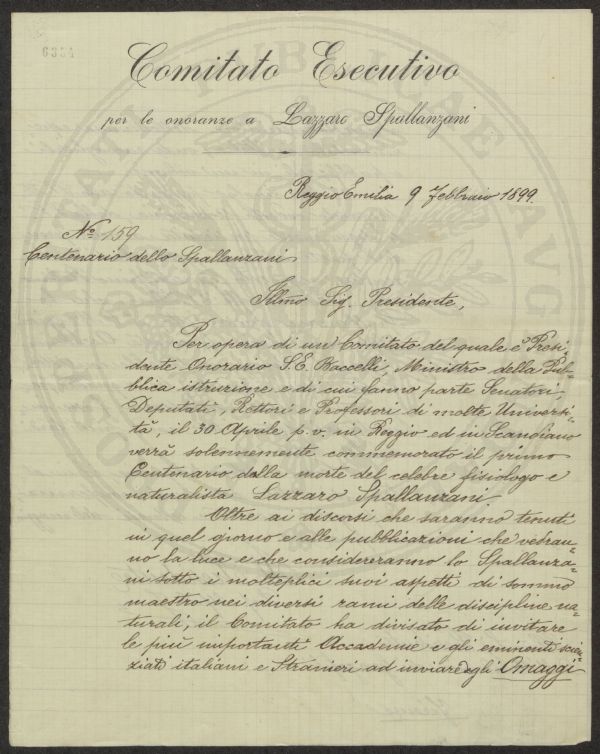 6334
Comitato Esecutivo
per le onoranze a Lazzaro Spallanzani
Reggio Emilia 9 Febbraio 1899.
No 159
Centenario dello Spallanzani
Illmo Sig. Presidente,
Per opera di un Comitato del quale è Presi=
dente Onorario S. E. Baccelli, Ministro della Pub=
blica istruzione e di cui fanno parte Senatori,
Deputati, Rettori e Professori di molte Universi=
tà, il 30 Aprile p. v. in Reggio ed in Scandiano
verrà solennemente commemorato il primo
Centenario della morte del celebre fisiologo e
naturalista Lazzaro Spallanzani
Oltre ai discorsi che saranno tenuti
in quel giorno e alle pubblicazioni che vedran=
no la luce e che considereranno lo Spallanza=
ni sotto i molteplici suoi aspetti di sommo
maestro nei diversi rami delle discipline na=
turali, il Comitato ha divisato di invitare
le più importanti Accademie e gli eminenti scien=
ziati italiani e Stranieri ad inviare degli Omaggi